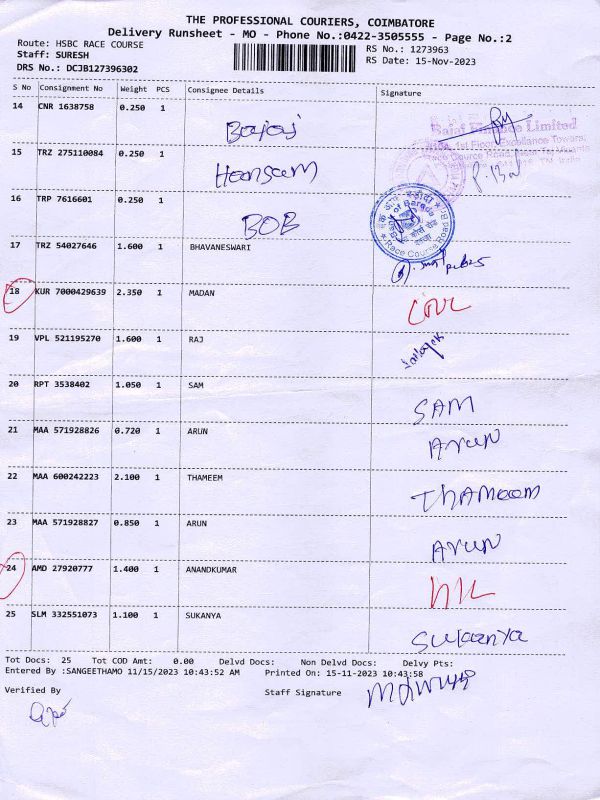 THE PROFESSIONAL COURIERS, COIMBATORE
Delivery Runsheet - MO - Phone No.:0422-3505555 - Page No.:2
Route: HSBC RACE COURSE RS No.: 1273963
Staff: SURESH RS Date: 15-Nov-2023
DRS No.: DCJB127396302
S No Consignment No Weight PCS Consignee Details Signature
14 CNR 1638758 0.250 1 Bajaj
Bajaj Finance Limited
1st Floor, Excellance Towers,
Race Cource Road
15 TRZ 275110084 0.250 1
16 TRP 7616601 0.250 1 BOB
Bank of Baroda
Race Course Road
17 TRZ 54027646 1.600 1 BHAVANESWARI
18 KUR 7000429639 2.350 1 MADAN
19 VPL 521195270 1.600 1 RAJ
20 RPT 3538402 1.050 1 SAM SAM
21 MAA 571928826 0.720 1 ARUN Arun
22 MAA 600242223 2.100 1 THAMEEM Thameem
23 MAA 571928827 0.850 1 ARUN Arun
24 AMD 27920777 1.400 1 ANANDKUMAR
25 SLM 332551073 1.100 1 SUKANYA Sukanya
Tot Docs: 25 Tot COD Amt: 0.00 Delvd Docs: Non Delvd Docs: Delvy Pts:
Entered By :SANGEETHAMO 11/15/2023 10:43:52 AM Printed On: 15-11-2023 10:43:58
Verified By Staff Signature